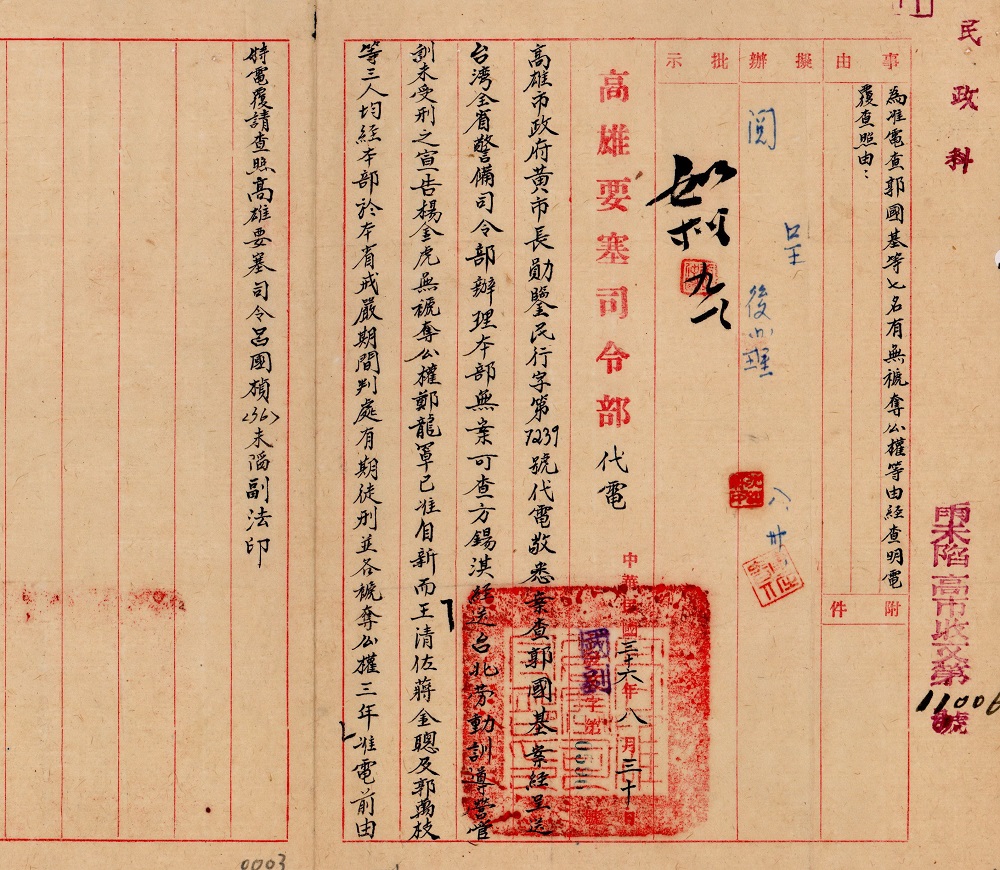 民政科
雨未陷高市收文第11006號
事由
為准電查郭國基等七名有無褫奪公權等由經查明電
覆查照由：
附件
擬辦
呈
閱
後
批示
九八
高雄要塞司令部代電
中華民國三十六年八月三十日
字第
號
高雄市政府黃市長勛鑒民行字第7239號代電敬悉案查郭國基案經呈送
台湾全省警備司令部辦理本部無案可查方錫淇經送台北劳動訓導营管
訓未受刑之宣告楊金虎無褫奪公權鄭龍軍已准自新而王清佐蔣金聰及郭萬枝
等三人均經本部於本省戒嚴期間判處有期徒刑並各褫奪公權三年准電前由
特電覆請查照高雄要塞司令呂國楨<36>未陷副法印
0003